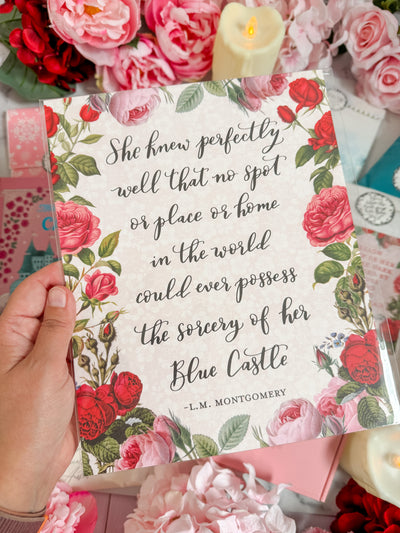 She knew perfectly
well that no spot
or place or home
in the world
could ever possess
the sorcery of her
Blue Castle
-L.M. MONTGOMERY